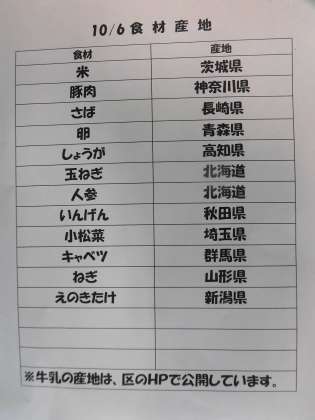 10/6 食材産地
食材 産地
米 茨城県
豚肉 神奈川県
さば 長崎県
卵 青森県
しょうが 高知県
玉ねぎ 北海道
人参 北海道
いんげん 秋田県
小松菜 埼玉県
キャベツ 群馬県
ねぎ 山形県
えのきたけ 新潟県
※牛乳の産地は、区のHPで公開しています。